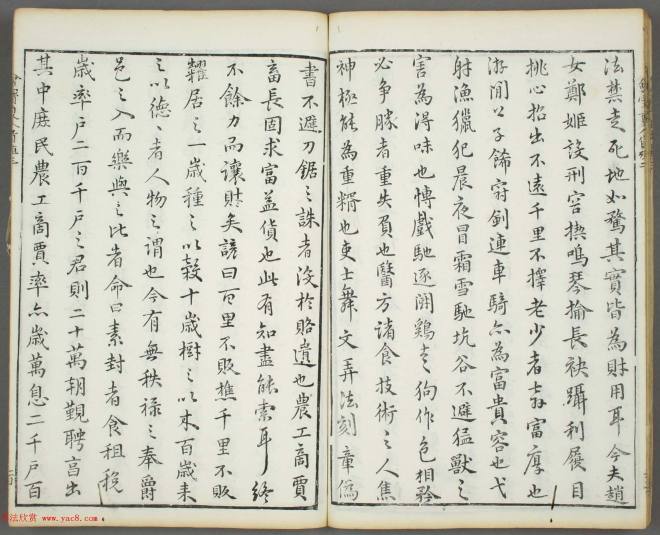 法禁走死地如騖其實皆為財用耳今夫趙
女鄭姬設刑容揳鳴琴揄長袂躡利屣目
挑心招出不遠千里不擇老少者奔富厚也
游閒公子飾冠劍連車騎亦為富貴容也弋
射漁獵犯晨夜冒霜雪馳坑谷不避猛獸之
害為得味也博戲馳逐鬬鷄走狗作色相矜
必爭勝者重失負也醫方諸食技術之人焦
神極能為重糈也吏士舞文弄法刻章偽
書不避刀鋸之誅者沒於賂遺也農工商賈
畜長固求富益貨也此有知盡能索耳終
不餘力而讓財矣諺曰百里不販樵千里不販
糴居之一歲種之以穀十歲樹之以木百歲来
之以德德者人物之謂也今有無秩祿之奉爵
邑之入而樂與之比者命曰素封者食租稅
歲率戶二百千戶之君則二十萬朝覲聘享出
其中庶民農工商賈率亦歲萬息二千戶百
书法欣赏 www.yac8.com